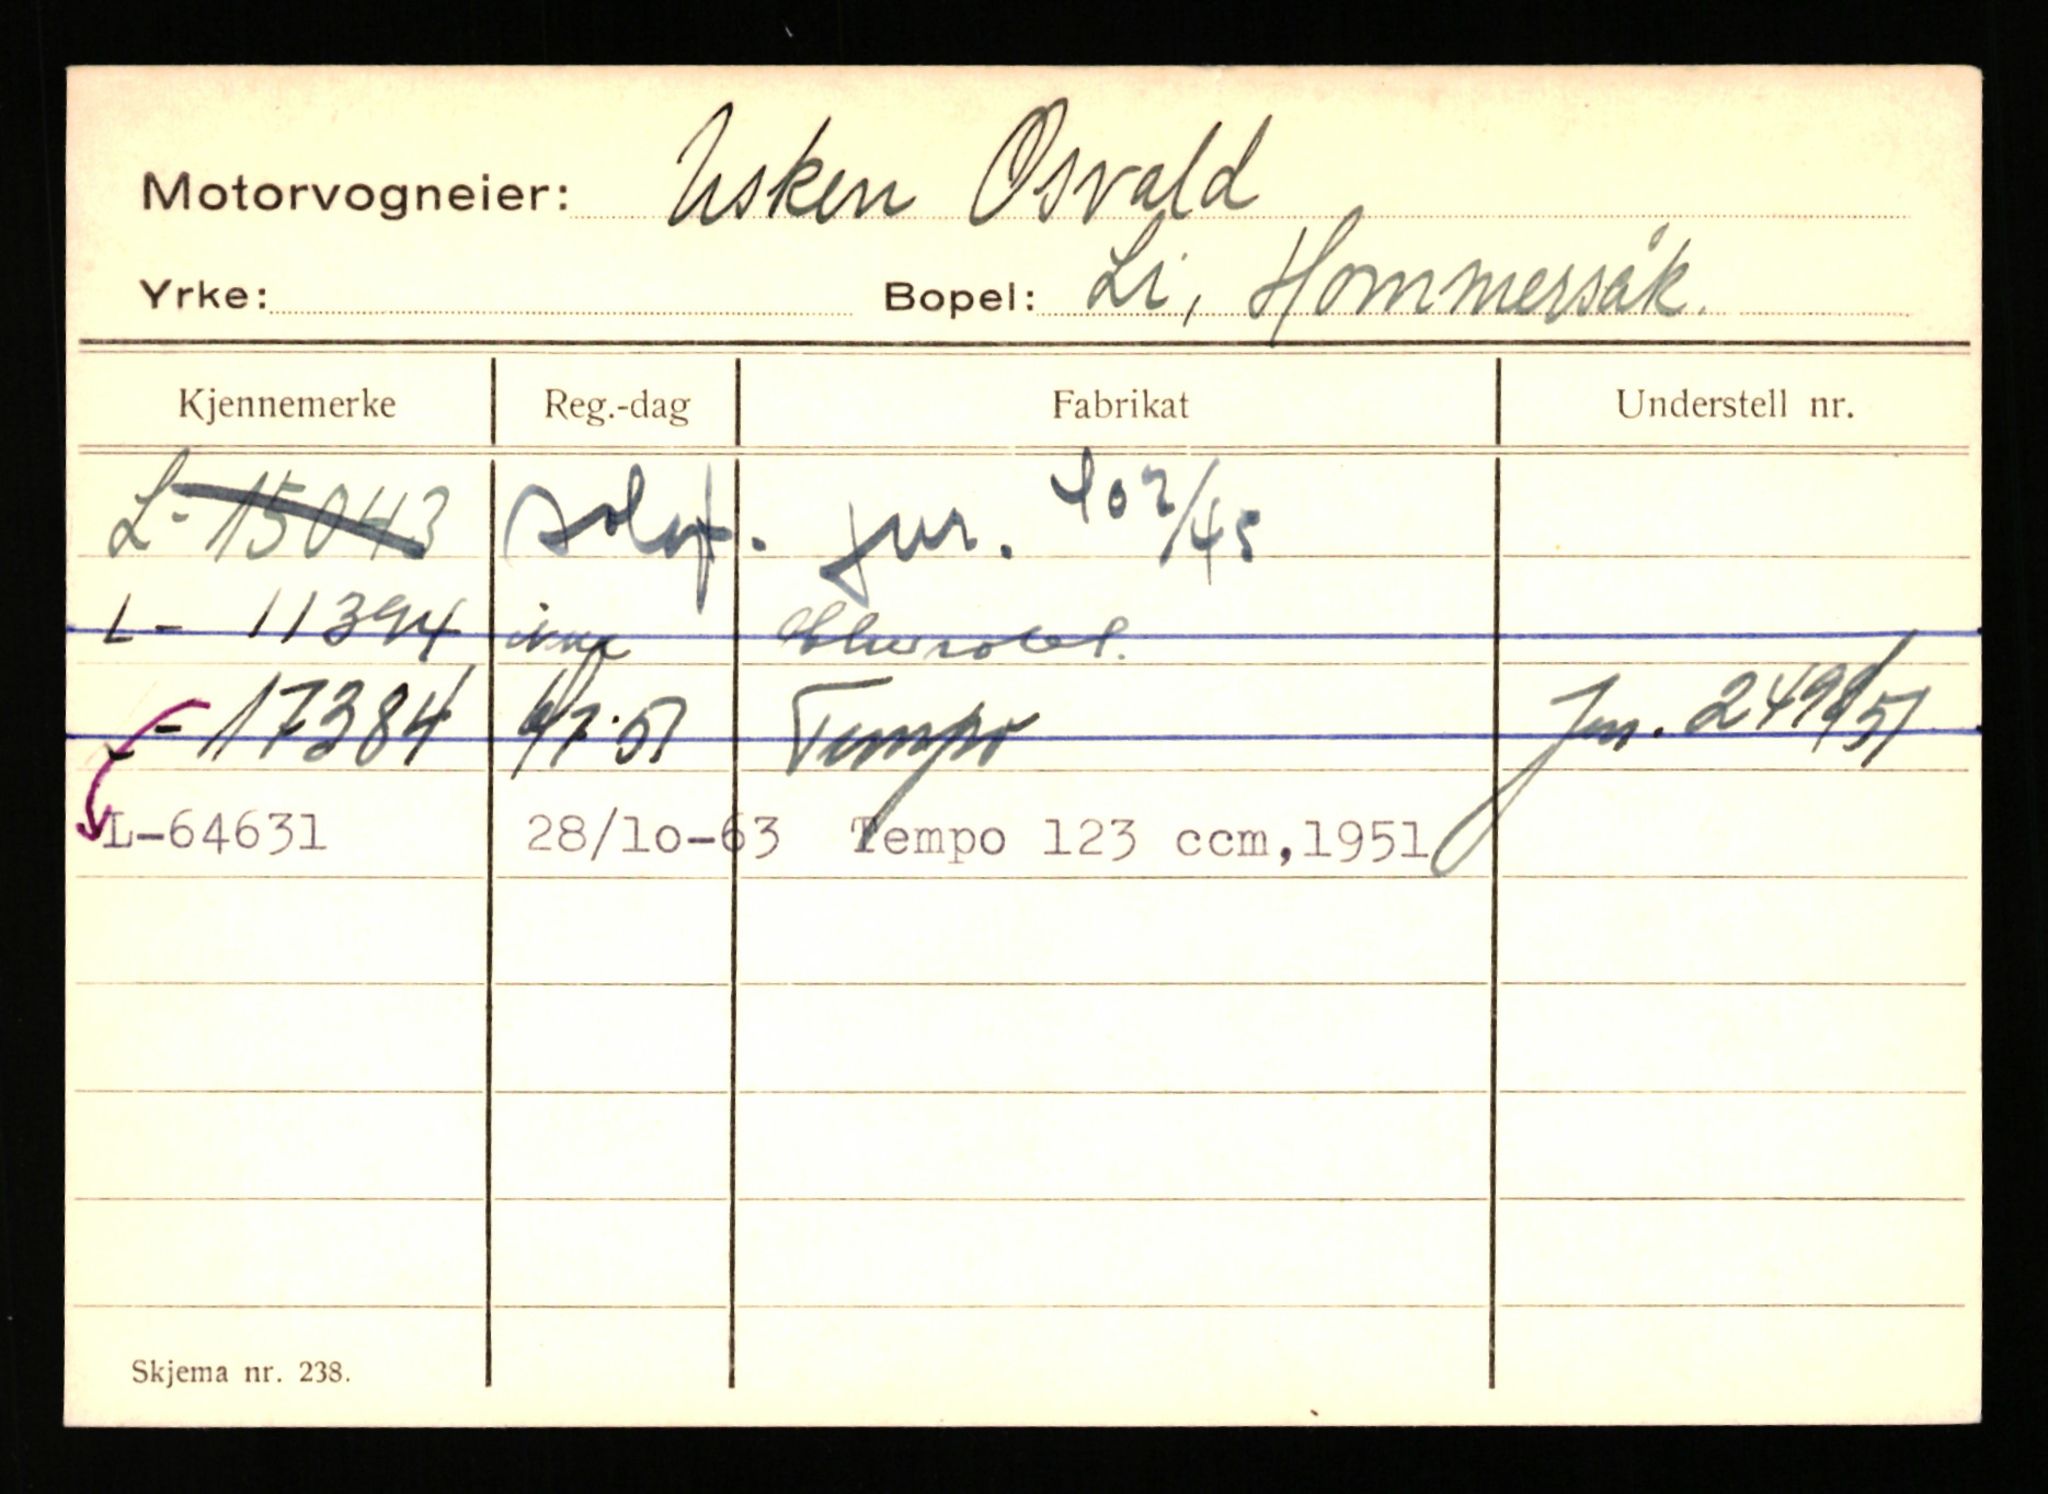 Motorvogneier: Usken Osvald
Yrke: Bopel: Li, Hommersåk.
Kjennemerke Reg.-dag Fabrikat Understell nr.
L-15043 solgt. jur. 402/45
L- 11394 Chevrolet.
L-17384 /7.51 Tempo Jur. 2499/51
L-64631 28/10-63 Tempo 123 ccm,1951
Skjema nr. 238.